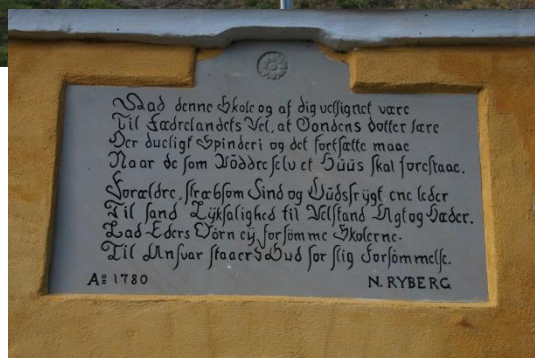 Lad denne Skole og af dig velsignet være
Til Fædrelandets Vel, at Bondens dotter lære
Der dueligt Spinderi og det fortsætte maae
Naar de som Möddre selv et Hüüs skal forestaae.
Forældre, stræbsom Sind og Güdsfrÿgt ene leder
Til sand Lÿksalighed til Velstand Agt og Hæder.
Lad Eders Börn eÿ forsömme Skolerne.
Til Ansvar staaer J Gud for slig Forsömmelse.
Ao 1780 N. RYBERG